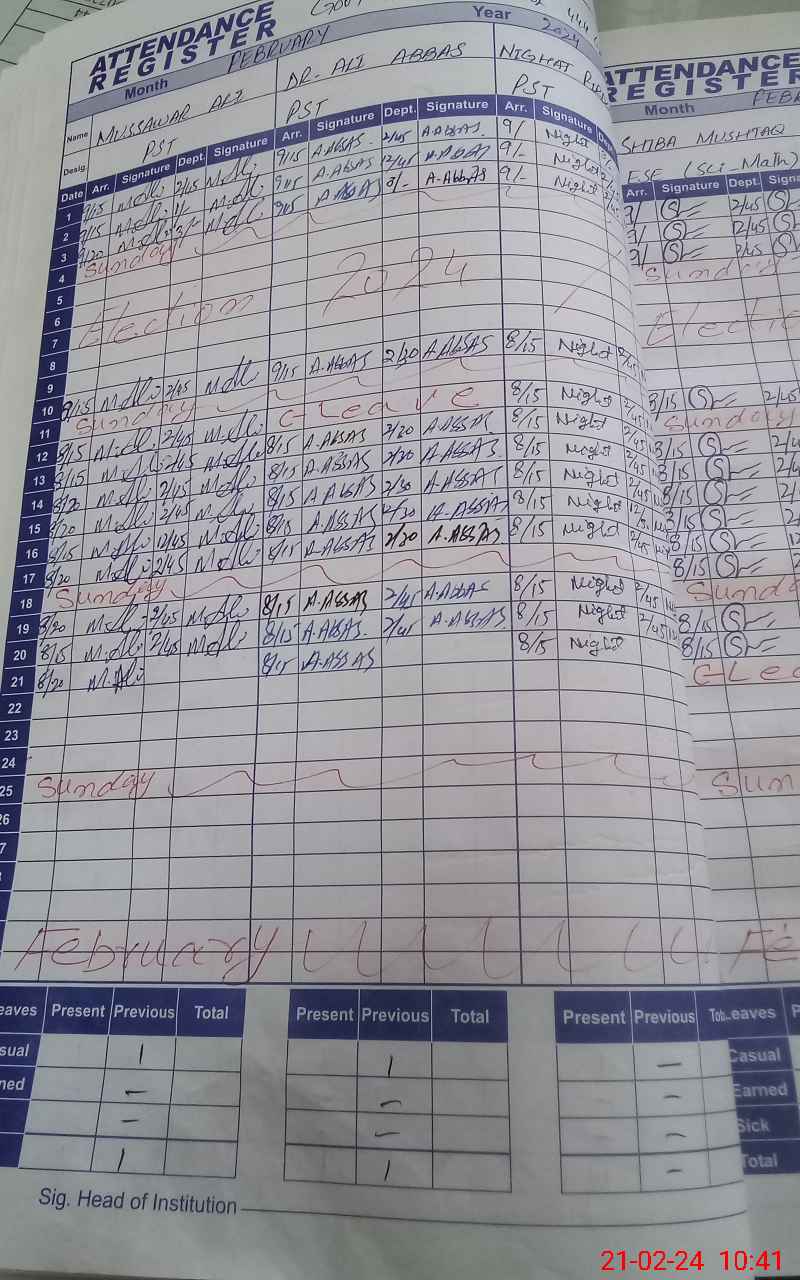 ATTENDANCE REGISTER
Month FEBRUARY Year 2024
Name MUSSAWAR ALI DR. ALI ABBAS NIGHAT
Desig. PST PST PST
Date Arr. Signature Dept. Signature Arr. Signature Dept. Signature Arr. Signature Dept.
1 9/15 M.Ali 2/45 M.Ali 9/15 A.ABBAS. 2/45 A.ABBAS. 9/- Night
2 9/15 M.Ali 1/- M.Ali 9/15 A.ABBAS 12/45 A.ABBAS 9/- Night
3 9/20 M.Ali 3/- M.Ali 9/15 A.ABBAS 3/- A.ABBAS 9/- Night
4 Sunday
5
6 Election 2024
7
8
9 9/15 A.ABBAS 2/30 A.ABBAS 8/15 Night 2/45
10 9/15 M.Ali 2/45 M.Ali C Leave 8/15 Night 2/45
11 Sunday
12 8/15 M.Ali 2/45 M.Ali 8/15 A.ABBAS 2/30 A.ABBAS 8/15 Night 2/45
13 8/15 M.Ali 2/45 M.Ali 8/15 A.ABBAS 2/30 A.ABBAS. 8/15 Night 2/45
14 8/20 M.Ali 2/45 M.Ali 8/15 A.ABBAS 2/30 A.ABBAS 8/15 Night 2/45
15 8/20 M.Ali 2/45 M.Ali 8/15 A.ABBAS 2/30 A.ABBAS 8/15 Night
16 8/15 M.Ali 12/45 M.Ali 8/15 A.ABBAS 2/30 A.ABBAS 8/15 Night 2/45
17 8/20 M.Ali 2/45 M.Ali
18 Sunday
19 8/20 M.Ali 2/45 M.Ali 8/15 A.ABBAS 2/45 A.ABBAS 8/15 Night 2/45
20 8/15 M.Ali 2/45 M.Ali 8/15 A.ABBAS. 2/45 A.ABBAS 8/15 Night 2/45
21 8/20 M.Ali 8/15 A.ABBAS 8/15 Night
22
23
24
25 Sunday
26
February
Present Previous Total Present Previous Total Present Previous
1 1 -
- - -
- - -
1 1 -
Sig. Head of Institution
ATTENDANCE
REGISTER
Month
SHIBA MUSHTAQ
ESE (Sci-Math)
Arr. Signature Dept.
9/ S 2/45 S
9/ S 2/45 S
9/ S 2/45 S
Sunday
8/15 S 2/45
Sunday
8/15 S
8/15 S
8/15 S
8/15 S
8/15 S
8/15 S
8/15 S
8/15 S
Casual
Earned
Sick
Total
21-02-24 10:41